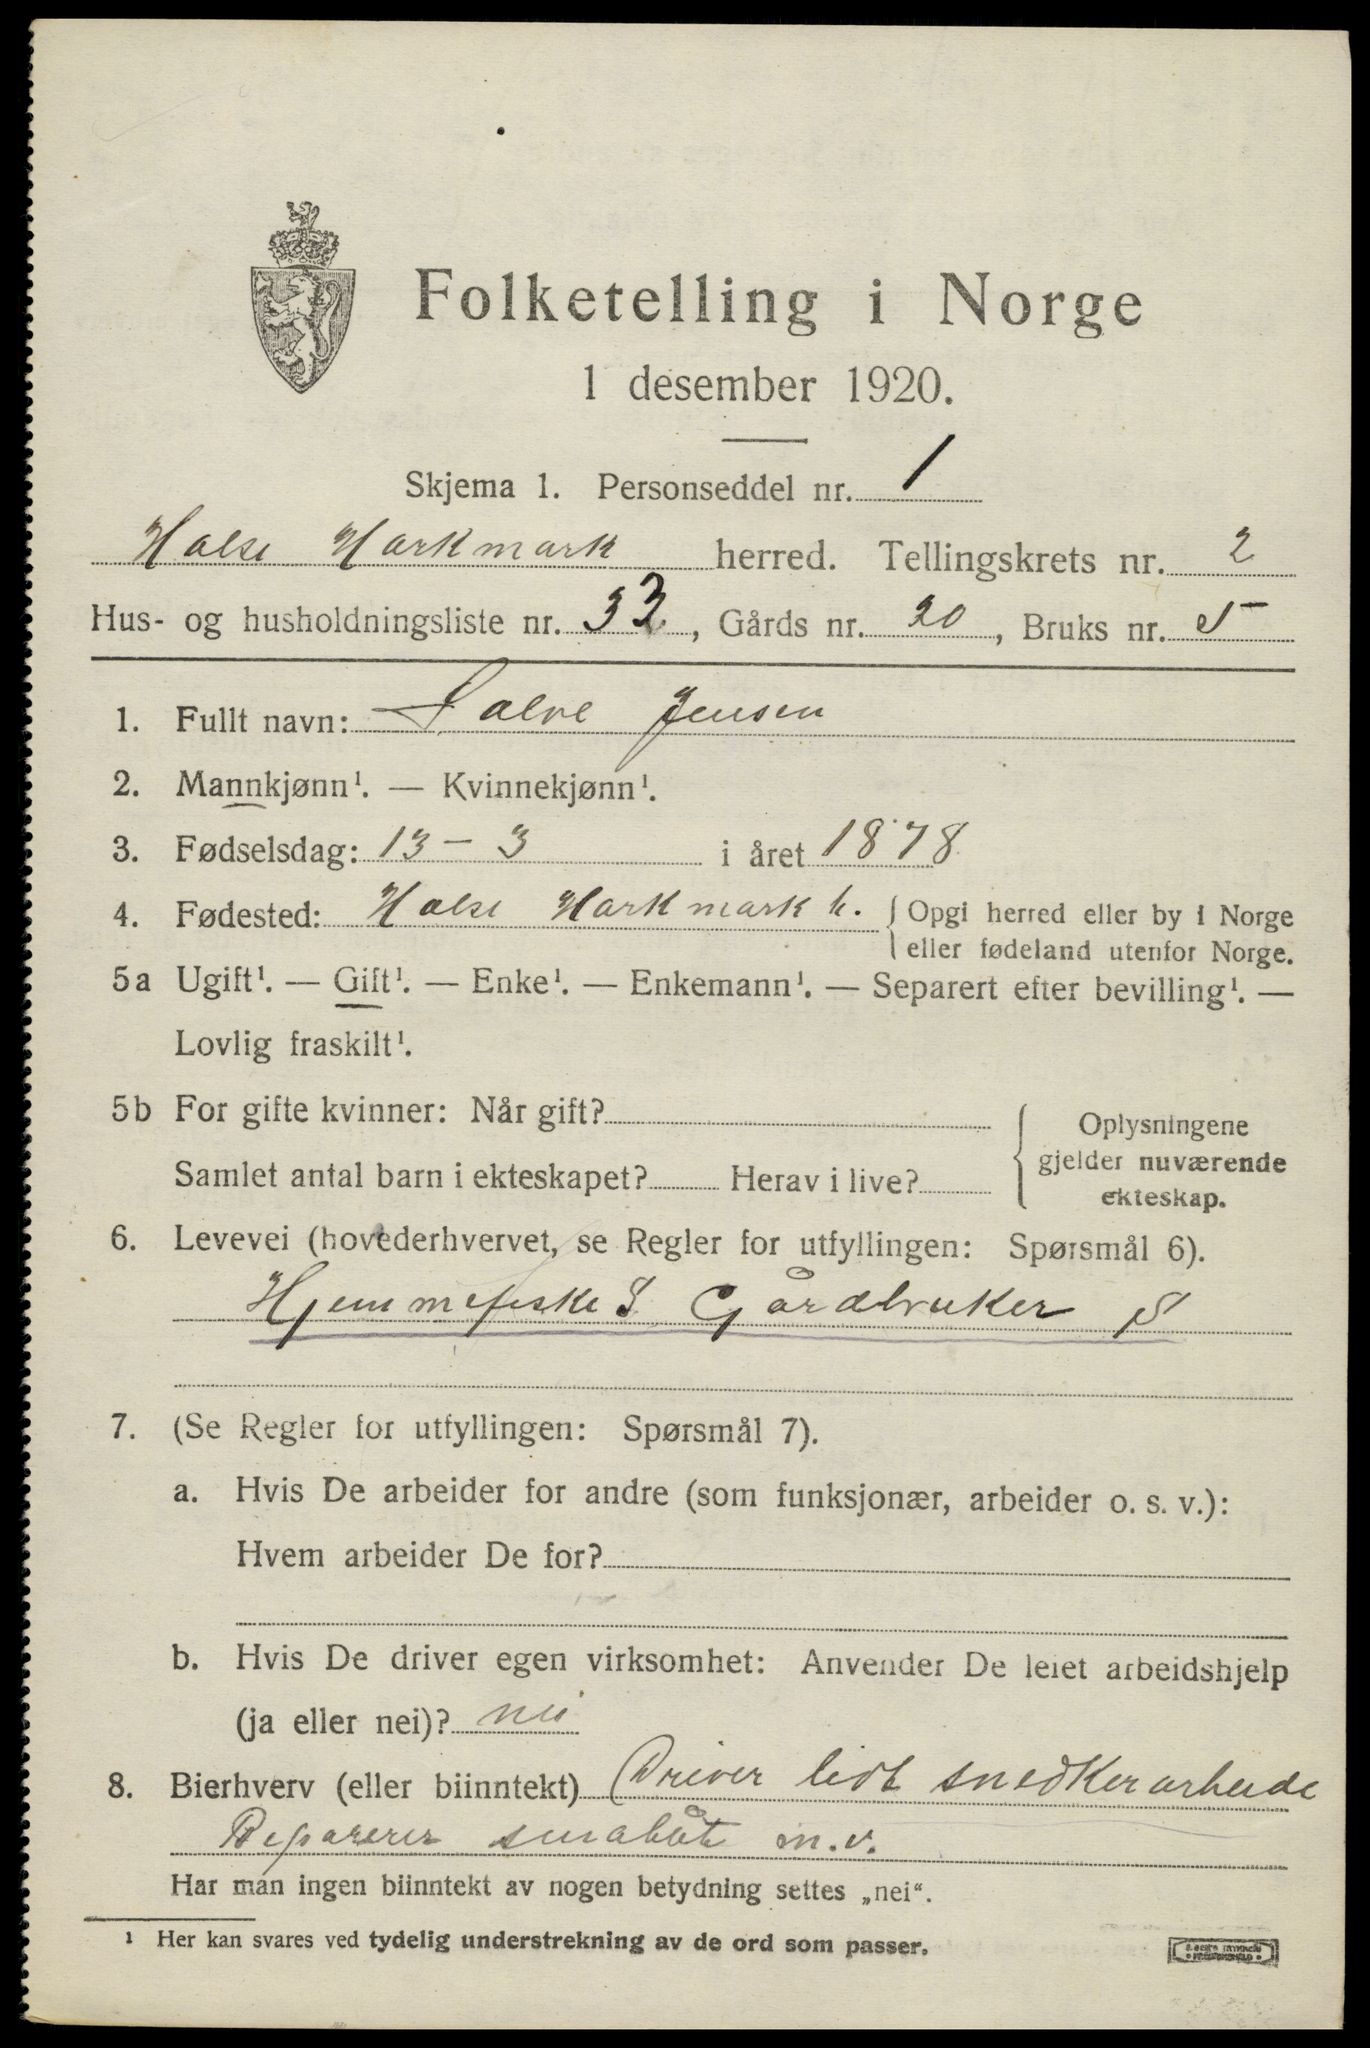 Folketelling i Norge
1 desember 1920.
Skjema 1. Personseddel nr. 1
Halse Harkmark herred. Tellingskrets nr. 2
Hus- og husholdningsliste nr. 33, Gårds nr. 20, Bruks nr. 5
1. Fullt navn: Salve Jensen
2. Mannkjønn¹. — Kvinnekjønn¹.
3. Fødselsdag: 13 - 3 i året 1878
4. Fødested: Halse Harkmark h. { Opgi herred eller by i Norge
eller fødeland utenfor Norge.
5a Ugift¹. — Gift¹. — Enke¹. — Enkemann¹. — Separert efter bevilling¹. —
Lovlig fraskilt¹.
5b For gifte kvinner: Når gift?
Samlet antal barn i ekteskapet? Herav i live?
{ Oplysningene
gjelder nuværende
ekteskap.
6. Levevei (hovederhvervet, se Regler for utfyllingen: Spørsmål 6).
Hjemmefiske S Gårdbruker S
7. (Se Regler for utfyllingen: Spørsmål 7).
a. Hvis De arbeider for andre (som funksjonær, arbeider o. s. v.):
Hvem arbeider De for?
b. Hvis De driver egen virksomhet: Anvender De leiet arbeidshjelp
(ja eller nei)? nei
8. Bierhverv (eller biinntekt) Driver lidt snedkerarbeide
Reparerer småbåte m.v.
Har man ingen biinntekt av nogen betydning settes „nei“.
¹ Her kan svares ved tydelig understrekning av de ord som passer.